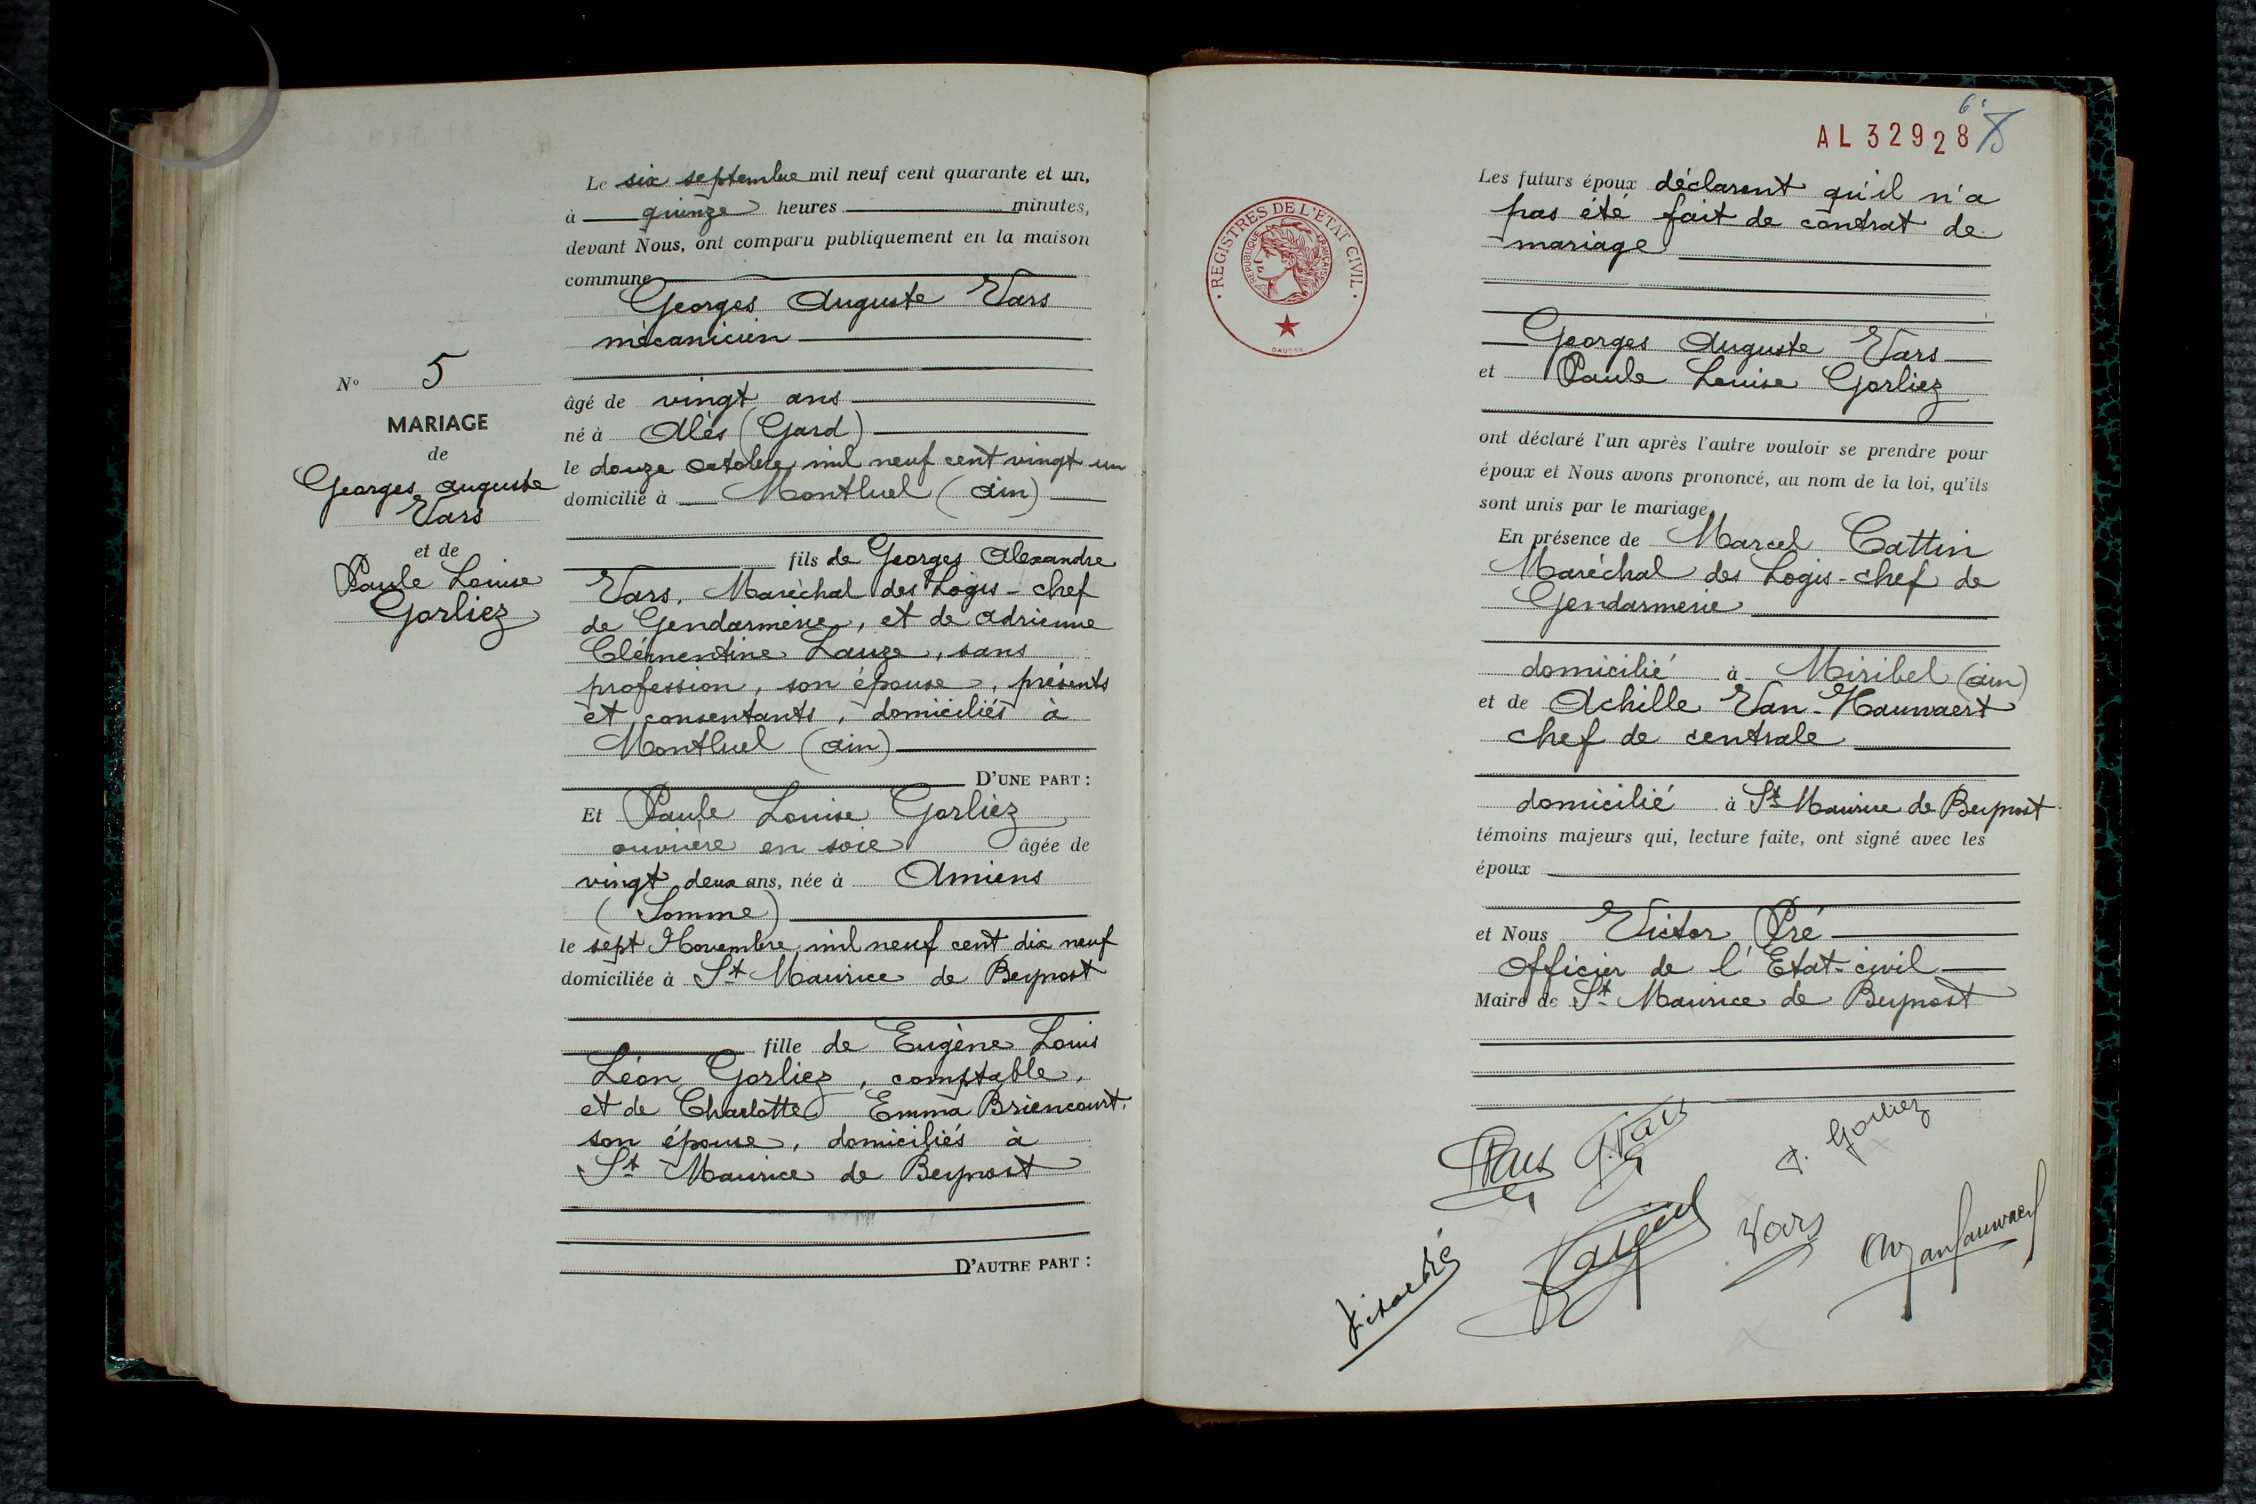 N° 5
MARIAGE
de
Georges Auguste
Vars
et de
Paule Louise
Gorliez
Le six septembre mil neuf cent quarante et un,
à quinze heures minutes,
devant Nous, ont comparu publiquement en la maison
commune
Georges Auguste Vars
mécanicien
âgé de vingt ans
né à Alès (Gard)
le douze octobre mil neuf cent vingt un
domicilié à Montluel (Ain)
fils de Georges Alexandre
Vars, Maréchal des Logis-chef
de Gendarmerie, et de Adrienne
Clémentine Lauze, sans
profession, son épouse, présents
et consentants, domiciliés à
Montluel (Ain)
D'UNE PART :
Et Paule Louise Gorliez
ouvrière en soie âgée de
vingt deux ans, née à Amiens
(Somme)
le sept Novembre mil neuf cent dix neuf
domiciliée à St Maurice de Beynost
fille de Eugène Louis
Léon Gorliez, comptable,
et de Charlotte Emma Briencourt,
son épouse, domiciliés à
St Maurice de Beynost
D'AUTRE PART :
6
AL 32928
REGISTRES DE L'ETAT CIVIL
REPUBLIQUE FRANÇAISE
Les futurs époux déclarent qu'il n'a
pas été fait de contrat de
mariage
Georges Auguste Vars
et Paule Louise Gorliez
ont déclaré l'un après l'autre vouloir se prendre pour
époux et Nous avons prononcé, au nom de la loi, qu'ils
sont unis par le mariage.
En présence de Marcel Cattin
Maréchal des Logis-chef de
Gendarmerie
domicilié à Miribel (Ain)
et de Achille Van-Hauwaert
chef de centrale
domicilié à St Maurice de Beynost
témoins majeurs qui, lecture faite, ont signé avec les
époux
et Nous Victor Pré
Officier de l'Etat-civil
Maire de St Maurice de Beynost
Vars G. Vars P. Gorliez
Victor Pré Vars